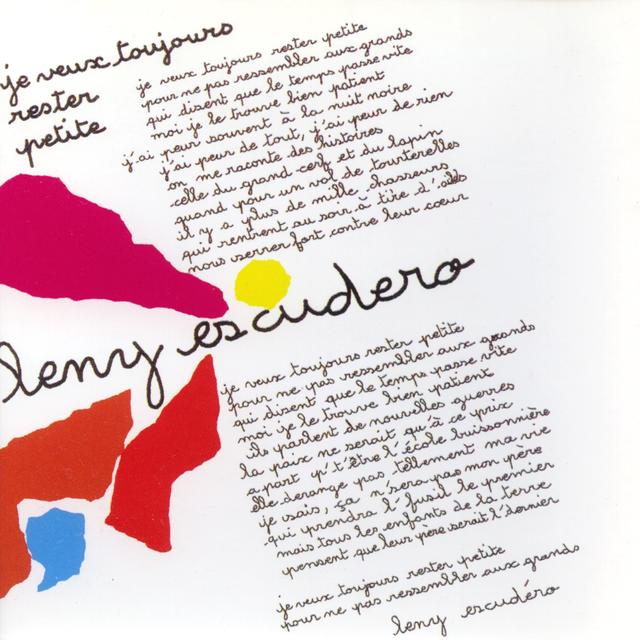 je veux toujours
rester
petite
je veux toujours rester petite
pour ne pas ressembler aux grands
qui disent que le temps passe vite
moi je le trouve bien patient
j'ai peur souvent à la nuit noire
j'ai peur de tout, j'ai peur de rien
on me raconte des histoires
celle du grand cerf et du lapin
quand pour un vol de tourterelles
il y a plus de mille chasseurs
qui rentrent au soir à tire d'ailes
nous serrer fort contre leur cœur
leny escudero
je veux toujours rester petite
pour ne pas ressembler aux grands
qui disent que le temps passe vite
moi je le trouve bien patient
ils parlent de nouvelles guerres
la paix ne serait qu'à ce prix
a part p't'être l'école buissonnière
elle dérange pas tellement ma vie
je sais, ça n'sera pas mon père
qui prendra l'fusil le premier
mais tous les enfants de la terre
pensent que leur père serait l'dernier
je veux toujours rester petite
pour ne pas ressembler aux grands
leny escudéro